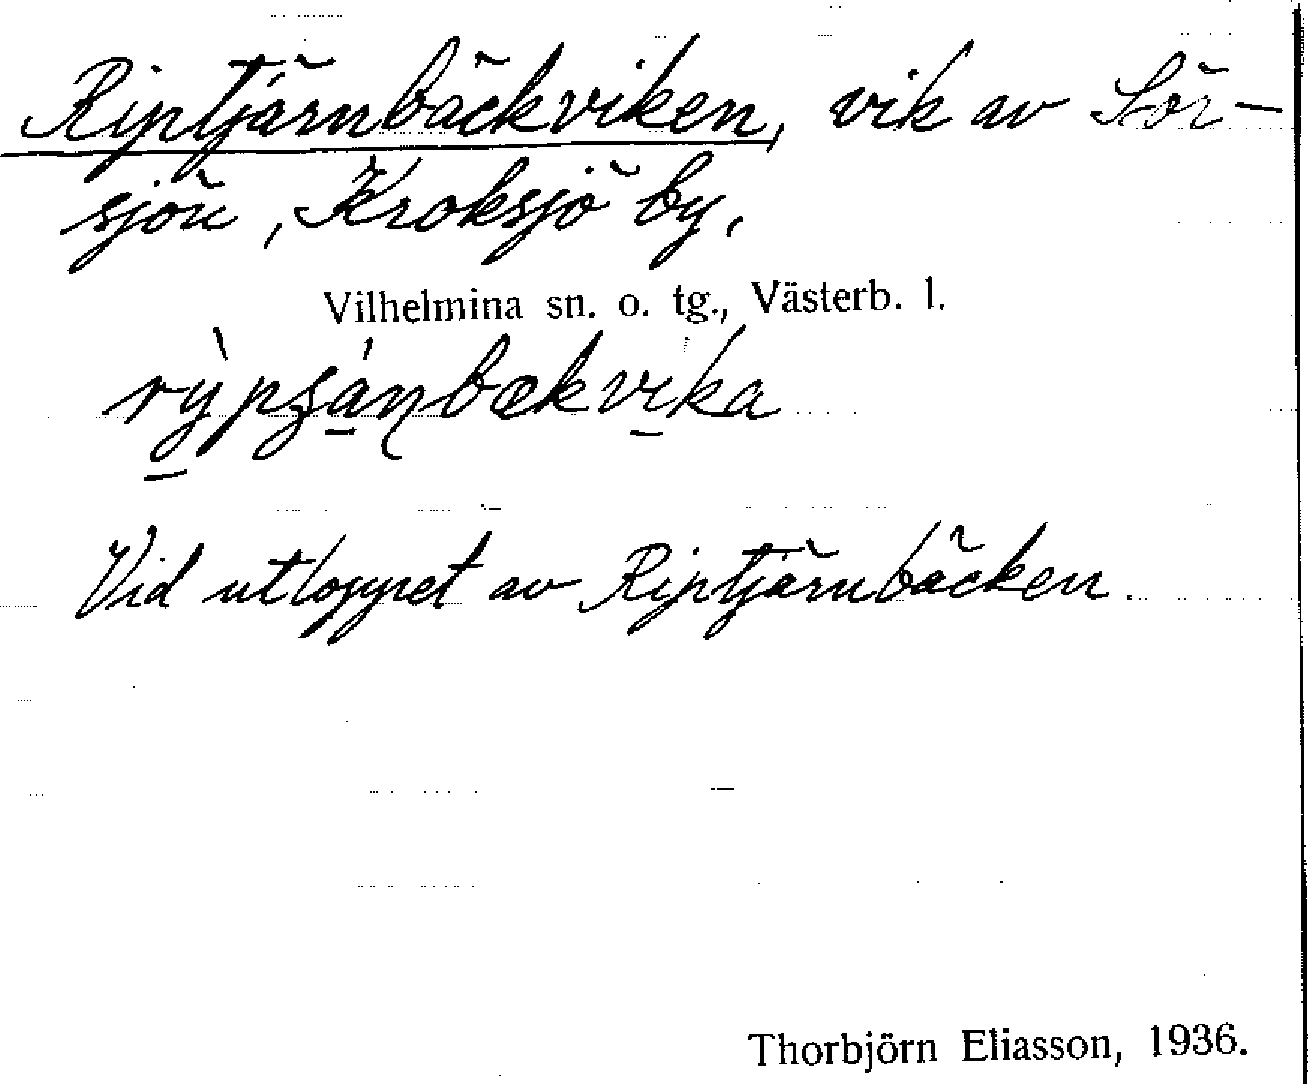 Riptjärnbäckviken, vik av Sör-
sjön, Kroksjö by.
Vilhelmina sn. o. tg., Västerb. l.
Vid utloppet av Riptjärnbäcken.
Thorbjörn Eliasson, 1936.